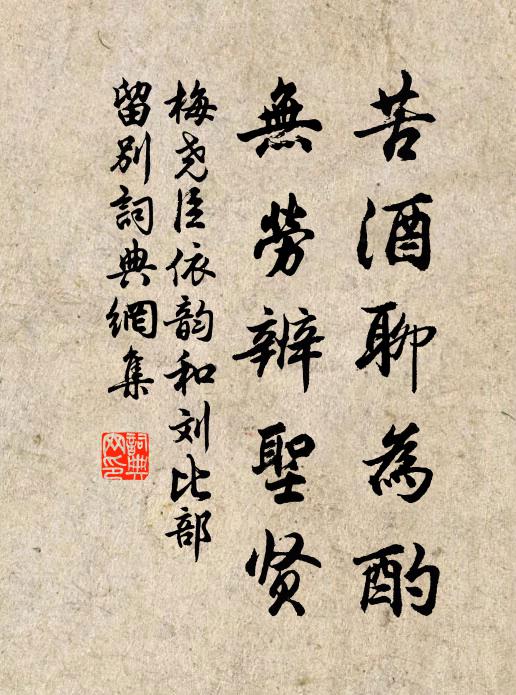 苦酒聊為酌
無勞辨聖贤
梅尧臣依韵和刘比部
留别詞典網集
詞典网印